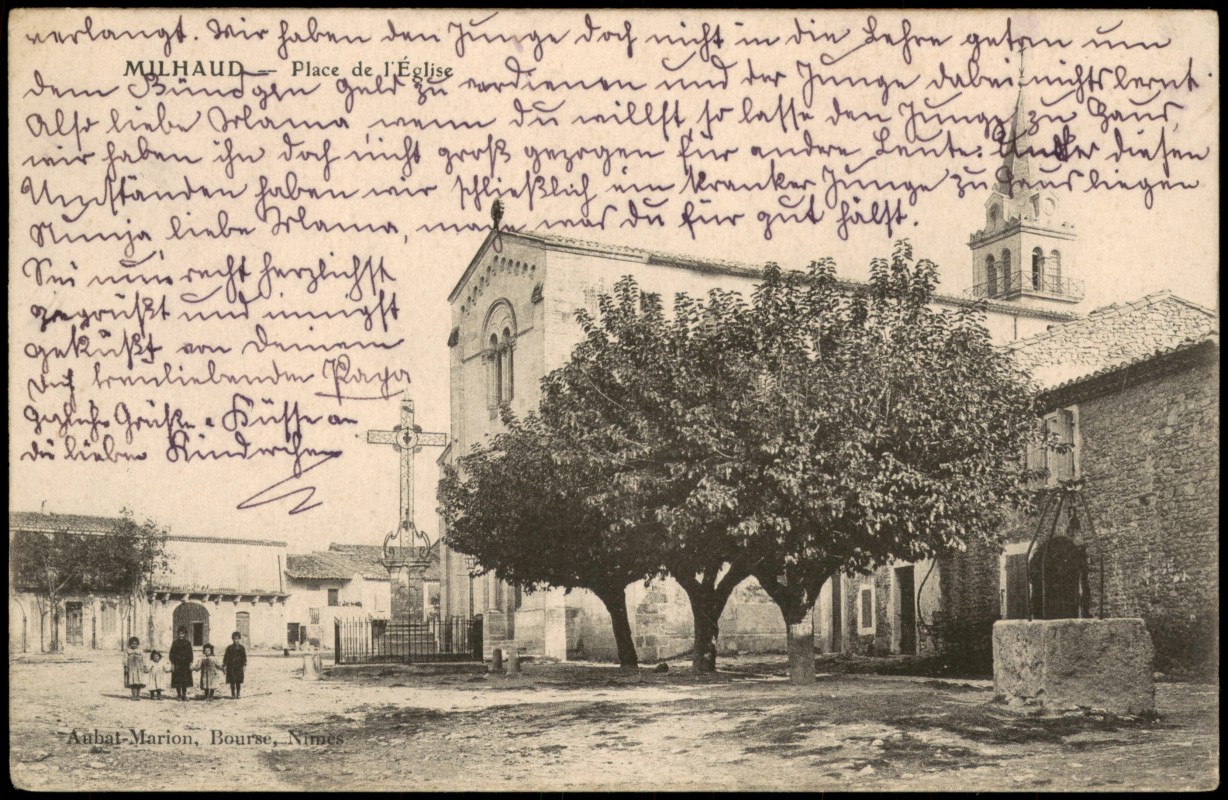 verlangt. Wir haben den Junge doch nicht in die Lehre getan um
MILHAUD — Place de l'Église
dem Geld zu verdienen und der Junge dabei nichts lernt.
Also liebe Mama, wenn du willst so lasse den Junge zu Haus,
wir haben ihn doch nicht groß gezogen für andere Leute. Unter diesen
Umständen haben wir schließlich ein kranker Junge zu Haus liegen
liebe Mama, mach was du für gut hälst.
Sei nun recht herzlichst
gegrüßt und innigst
geküßt von Deinem
Dich treuliebenden Papa
Grüße u Küsse an
die lieben Kinderchen
Aubat-Marion, Bourse, Nimes